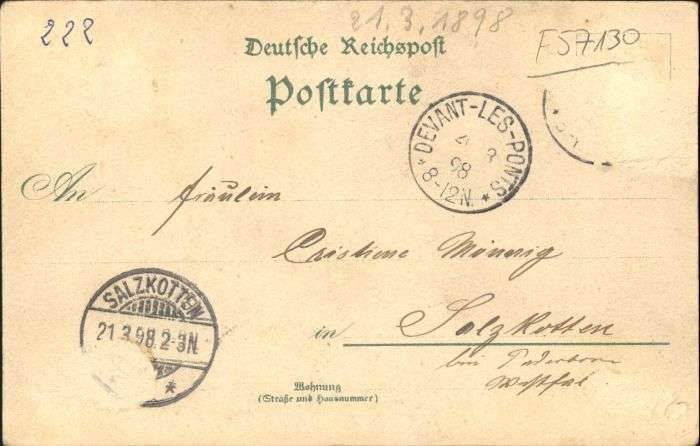 222
21.3.1898
F57130
Deutsche Reichspost
Postkarte
DEVANT-LES-PONTS
98
8-12N.
An Fräulein
Cristiene
SALZKOTTEN
21.3.98.2-3N
in Salzkotten
bei Paderborn
Westfal
Wohnung
(Straße und Hausnummer)